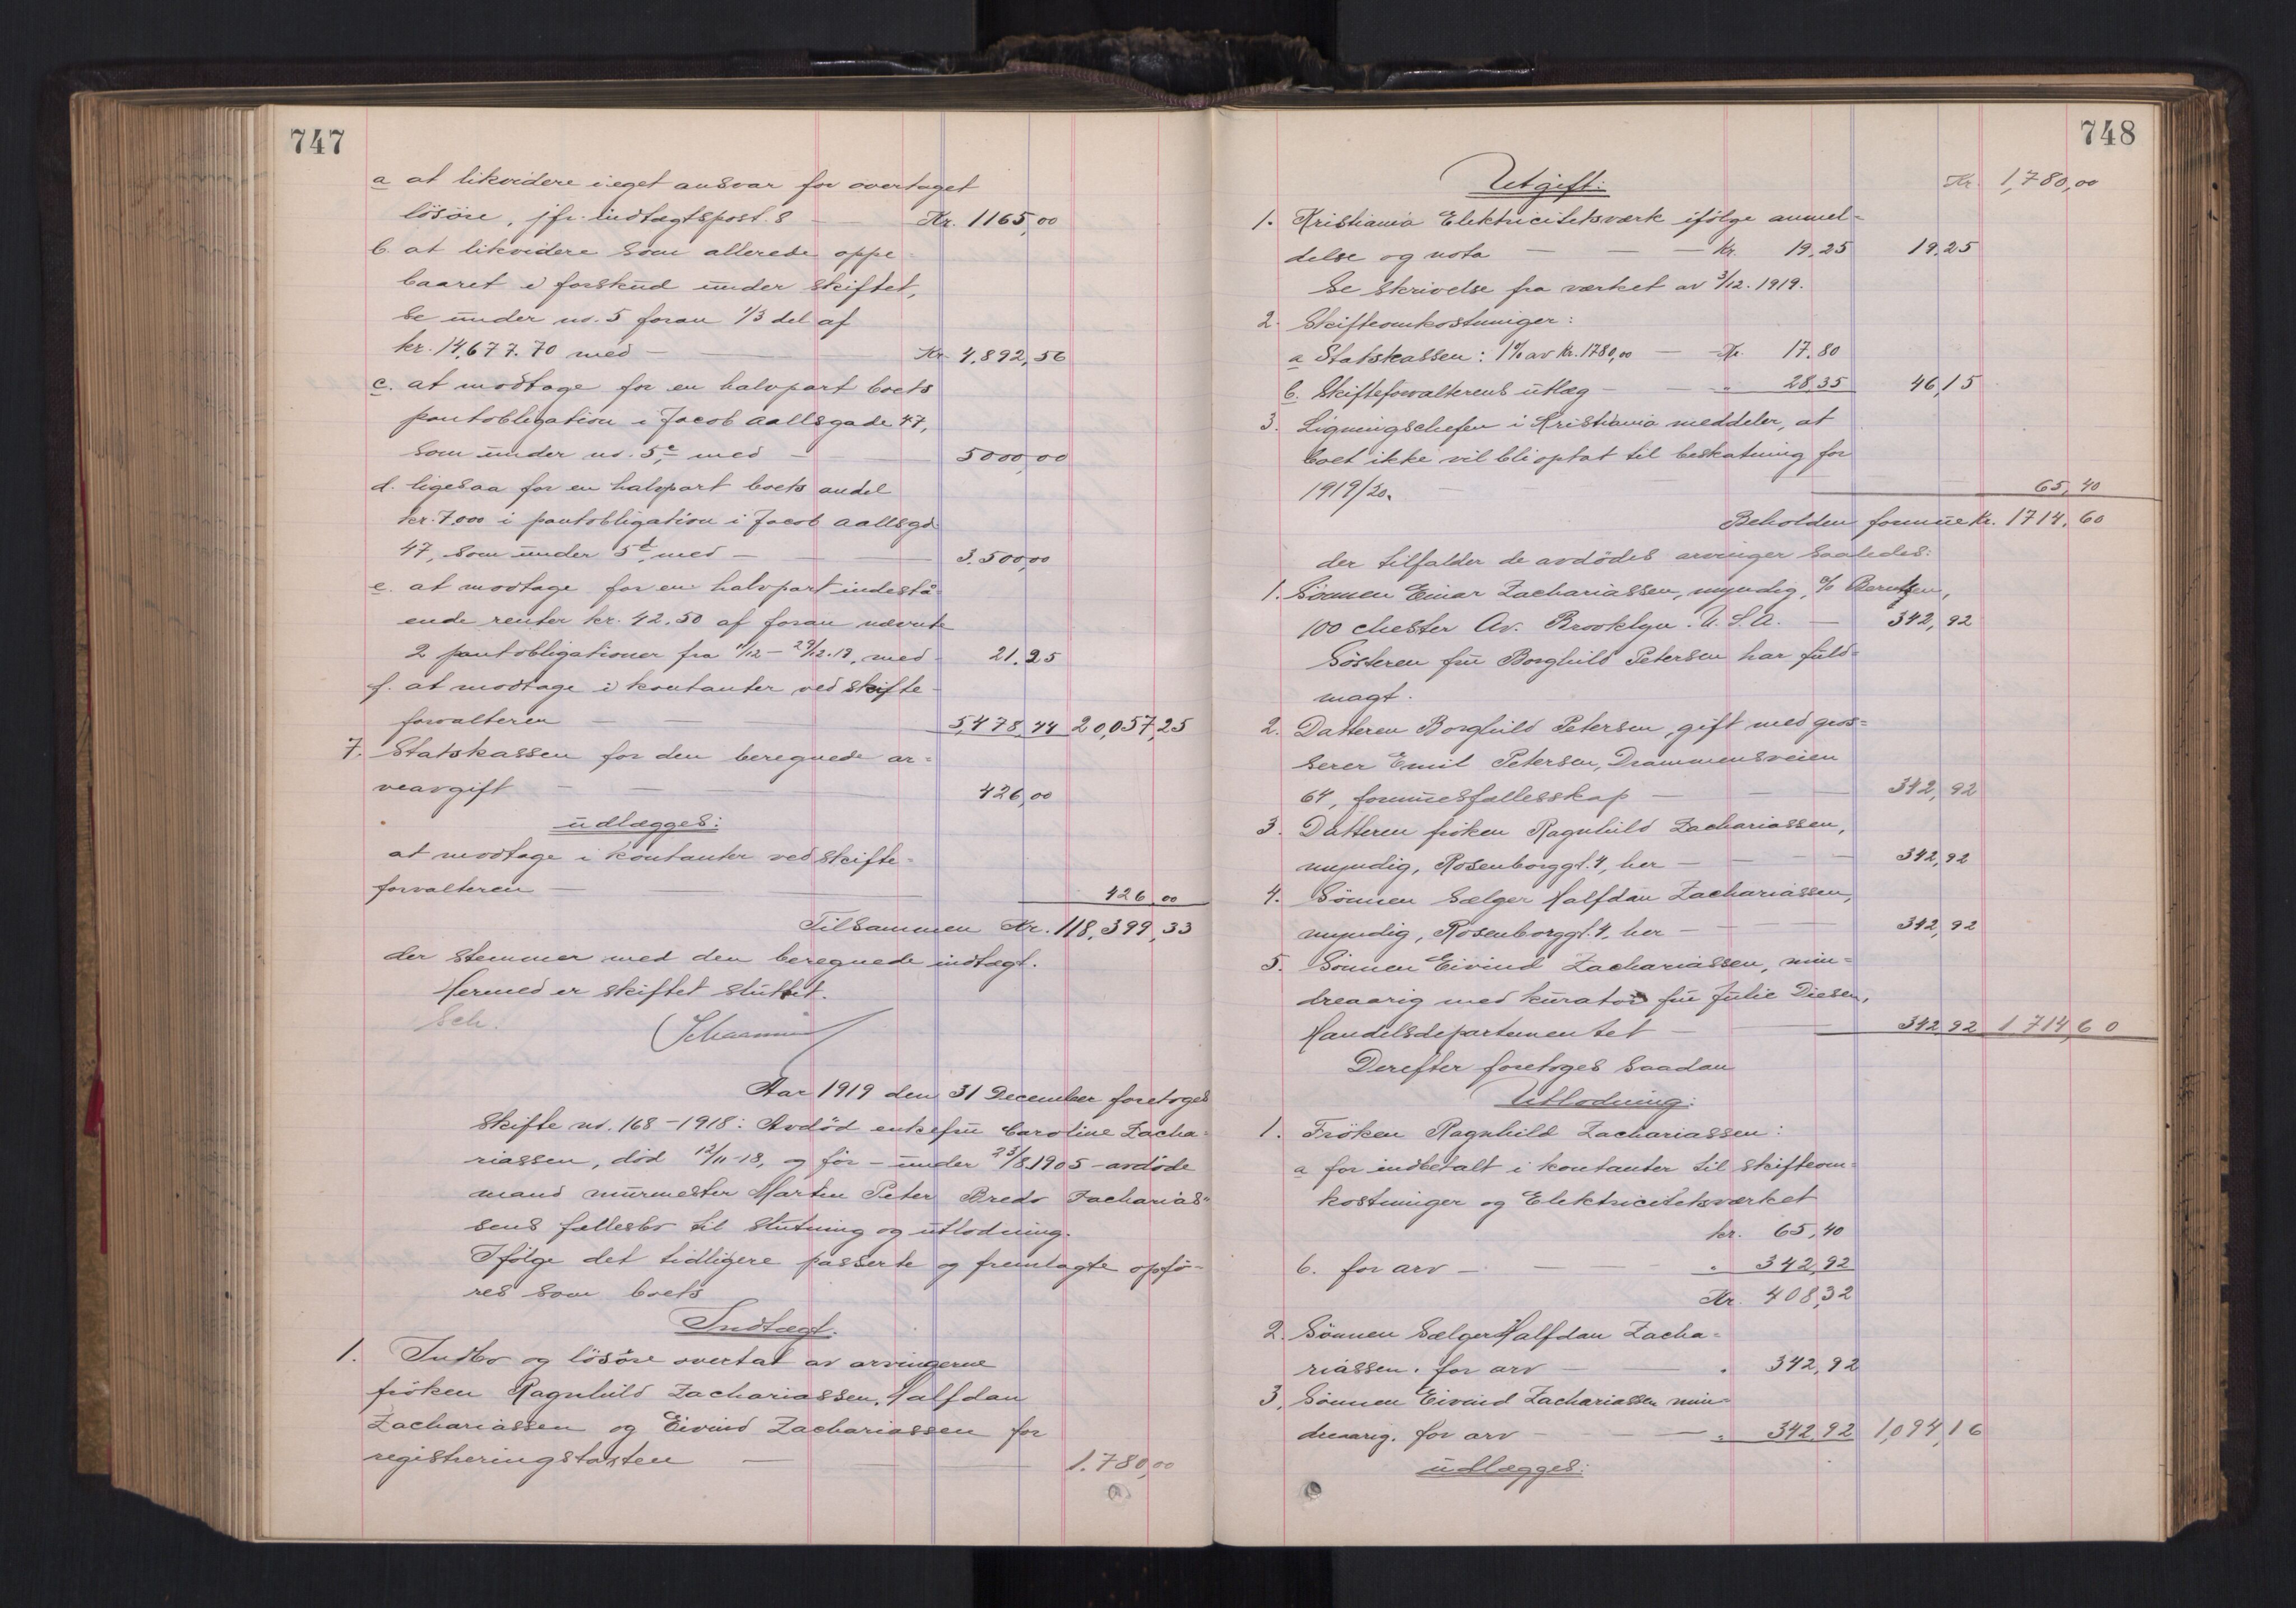 747
a at likvidere i eget ansvar for overtaget
lösöre, jfr. indtægtspost. 8 — Kr. 1165,00
b. at likvidere som allerede oppe-
baaret i forskud under skiftet,
se under no. 5 foran 1/3 del af
kr. 14,677.70 med — Kr. 4,892,56
c. at modtage for en halvpart boets
pantobligation i Jacob Aallsgade 47,
som under no. 5c, med — 5000,00
d. ligesaa for en halvpart boets andel
kr. 7,000 i pantobligation i Jacob Aallsgd.
47, som under 5d, med — 3.500,00
e. at modtage for en halvpart indestå-
ende renter kr. 42.50 af foran nævnte
2 pantobligationer fra 11/12 – 29/12.19, med 21.25
f. at modtage i kontanter ved skifte-
forvalteren — 5,478,44 20,057,25
7. Statskassen for den beregnede ar-
veavgift — 426,00
udlægges:
at modtage i kontanter ved skifte-
forvalteren — 426,00
Tilsammen Kr. 118,399,33
der stemmer med den beregnede indtægt.
Hermed er skiftet sluttet.
Sch.
Aar 1919 den 31 December foretoges
skifte no. 168 – 1918: Avdöd enkefru Caroline Zacha-
riassen, död 12/11-18, og för – under 23/8 1905 – avdöde
mand murmester Martin Peter Bredo Zacharias-
sens fællesbo til slutning og utlodning.
Ifölge det tidligere passerte og fremlagte opfö-
res som boets
Indtægt.
1. Indbo og lösöre overtat av arvingerne
fröken Ragnhild Zachariassen, Halfdan
Zachariassen og Eivind Zachariassen for
registreringstaksten — 1.780,00
748
Utgift: Kr. 1,780,00
1. Kristiania Elektricitetsværk ifölge anmel-
delse og nota — Kr. 19,25 19,25
Se skrivelse fra værket av 3/12. 1919.
2. Skifteomkostninger:
a Statskassen: 1% av Kr. 1780,00 — Kr. 17.80
b. Skifteforvalterens utlæg — " 28,35 46,15
3. Ligningschefen i Kristiania meddeler, at
boet ikke vil bli optat til beskatning for
1919/20. — 65,40
Beholden formue Kr. 1714,60
der tilfalder de avdödes arvinger saaledes:
1. Sönnen Einar Zachariassen, myndig, c/o Berntzen,
100 Chester Av. Brooklyn. U.S.A. — 342,92
Sösteren fru Borghild Petersen har fuld-
magt.
2. Datteren Borghild Petersen, gift med gros-
serer Emil Petersen, Drammensveien
64, formuesfællesskap — 342,92
3. Datteren fröken Ragnhild Zachariassen,
myndig, Rosenborggt. 4, her — 342,92
4. Sönnen Sælger Halfdan Zachariassen,
myndig, Rosenborggt. 4, her — 342,92
5. Sönnen Eivind Zachariassen, min-
dreaarig med kurator fru Julie Diesen,
Handelsdepartementet — 342,92 1714,60
Derefter foretoges saadan
Utlodning:
1. Fröken Ragnhild Zachariassen:
a for indbetalt i kontanter til skifteom-
kostninger og Elektricitetsværket
kr. 65,40
b. for arv — " 342,92
Kr. 408,32
2. Sönnen Sælger Halfdan Zacha-
riassen. for arv — " 342,92
3. Sönnen Eivind Zachariassen min-
dreaarig. for arv — " 342,92 1,094,16
udlægges: